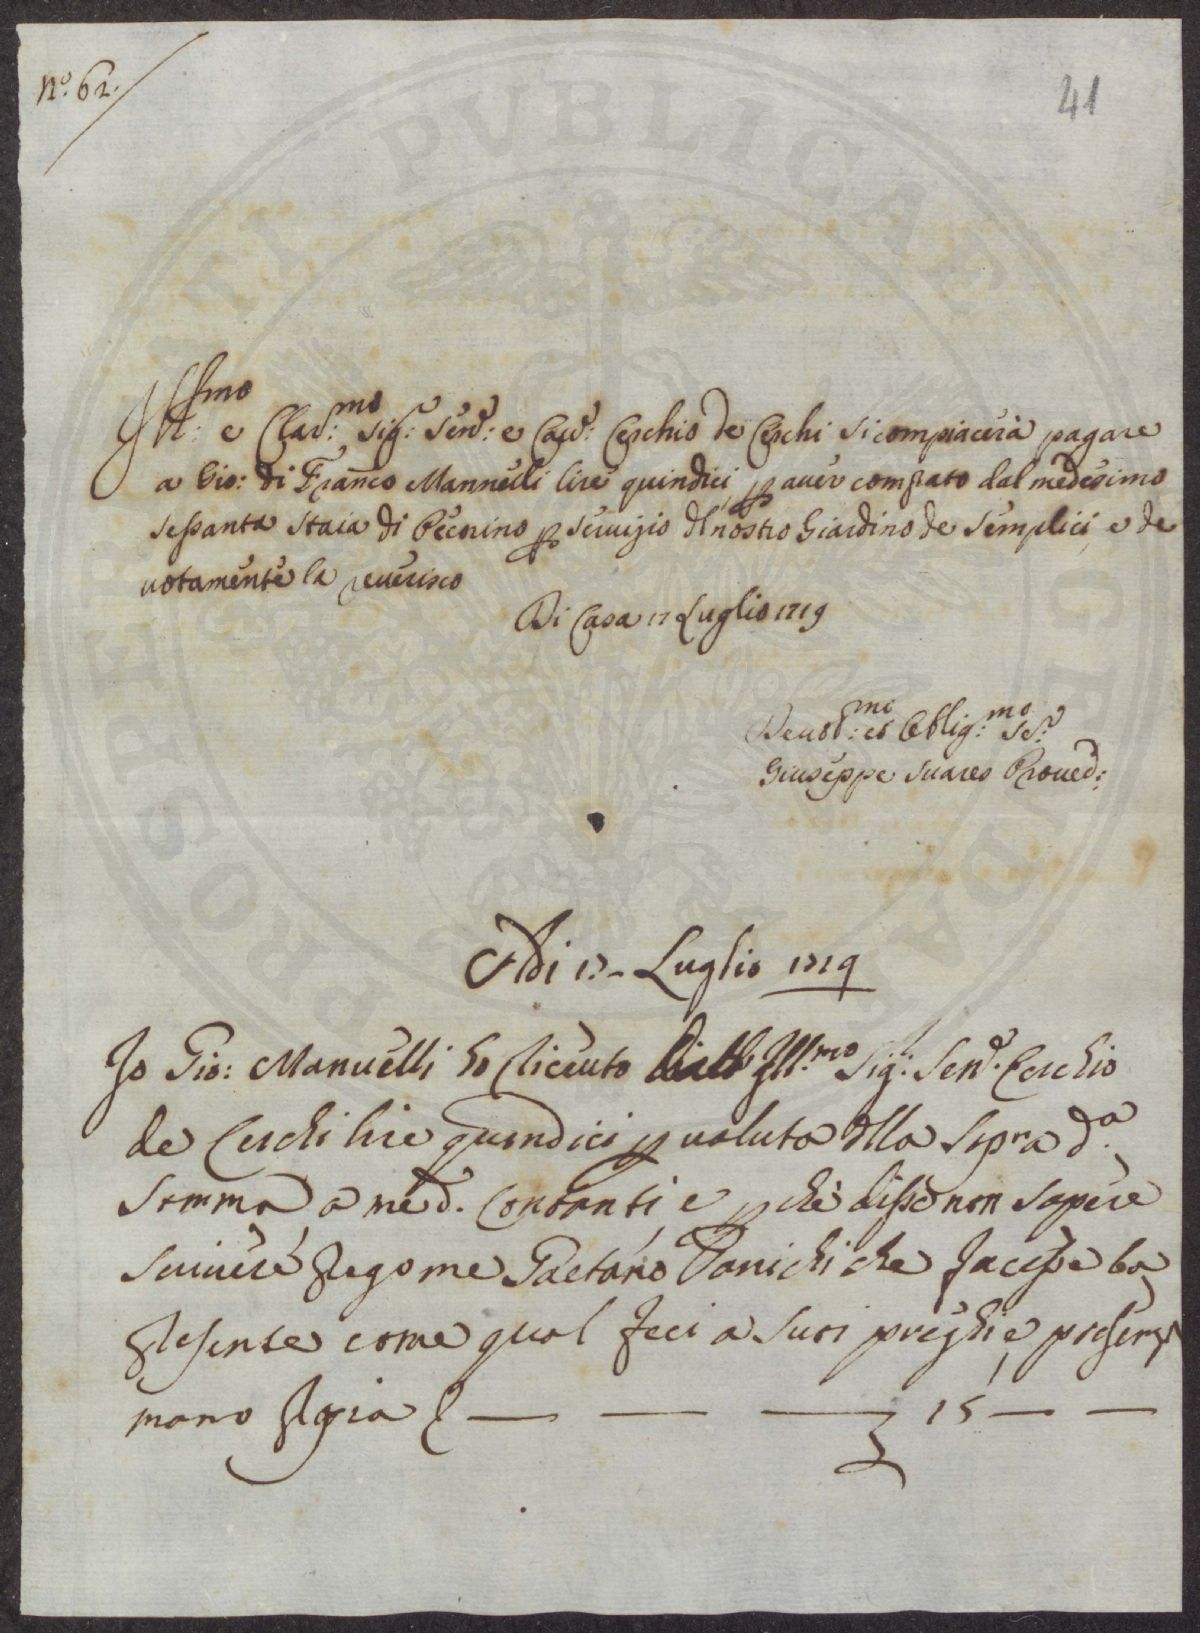 N.º 62.
41
Ill:mo e Clar:mo Sig:r Sen:r e Cav:r Cerchio de Cerchi si compiacerà pagare
a Gio: di Fran:co Mannelli lire quindici p aver comprato dal medesimo
sessanta staia di Pecorino p servizio dl nostro Giardino de Semplici, e de
votamente la reverisco
Di Casa 17 Luglio 1719
Devot:mo et Oblig:mo Se:r
Giuseppe Suares Proved:
Adi 17 Luglio 1719
Io Gio: Manuelli ho riceuto Ill:mo Sig: Sen:r Cerchio
de Cerchi lire quindici p valuta dlla sopra d:a
Somma a me d. Contanti, e p che disse non sapere
scrivere prego me Gaetano che facesse la
presente come qual feci a suoi preghi e presenza
mano propria 15
PROSPERITATI PVBLICAE